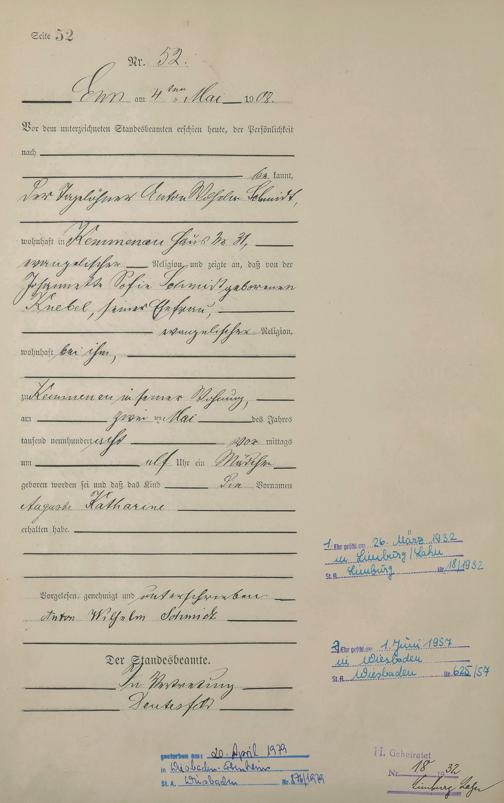 Seite 52
Nr. 52.
Ems am 4ten Mai 1908.
Vor dem unterzeichneten Standesbeamten erschien heute, der Persönlichkeit
nach
be kannt,
der Tagelöhner Anton Wilhelm Schmidt,
wohnhaft in Kemmenau Haus No 31,
evangelischer Religion, und zeigte an, daß von der
Johannette Sofie Schmidt geborenen
Knebel, seiner Ehefrau,
evangelischer Religion,
wohnhaft bei ihm,
zu Kemmenau in seiner Wohnung,
am zwei ten Mai des Jahres
tausend neunhundert acht Vor mittags
um elf Uhr ein Mädchen
geboren worden sei und daß das Kind die Vornamen
Auguste Katharine
erhalten habe.
Vorgelesen, genehmigt und unterschrieben
Anton Wilhelm Schmidt
Der Standesbeamte.
In Vertretung
1. Ehe geschl. am: 26. März 1932
in Limburg/Lahn
St. A. Limburg Nr. 18/1932
2. Ehe geschl. am: 1. Juni 1957
in Wiesbaden
St. A. Wiesbaden Nr. 625/57
gestorben am: 20. April 1979
in Wiesbaden
St. A. Wiesbaden Nr. /1979
H. Geheiratet
Nr. 18 1932
Limburg Lahn